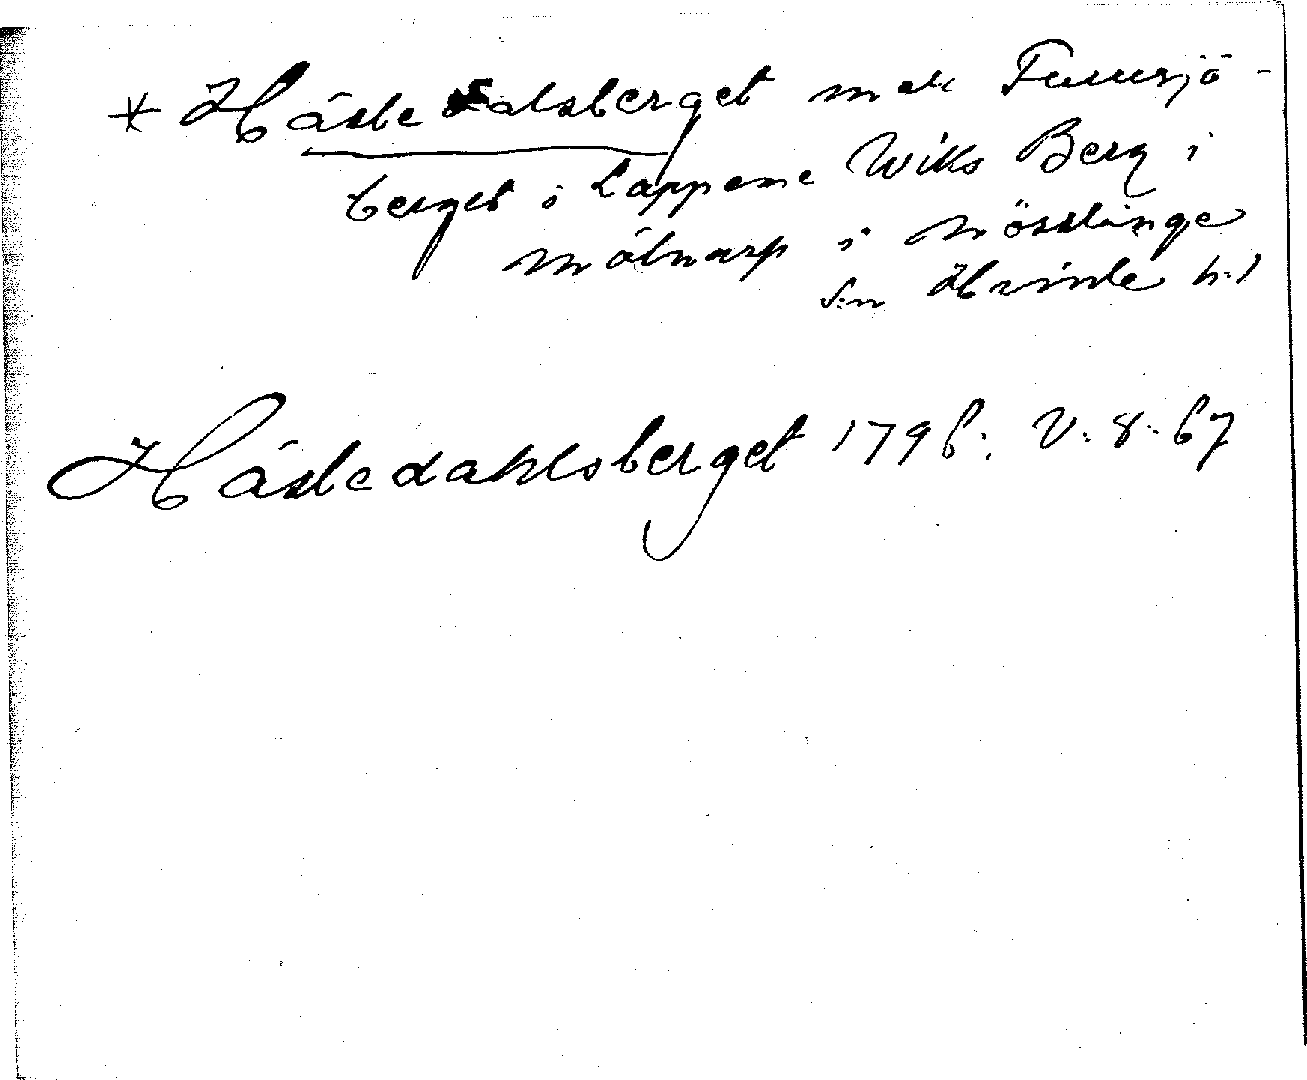 * Hästedalsberget mell Furusjö-
berget i Lappane Wiks Berg i
Mölnarp i Nösslinge
s:n Himle h:d
Hästedahlsberget 1796: V: 8: 67